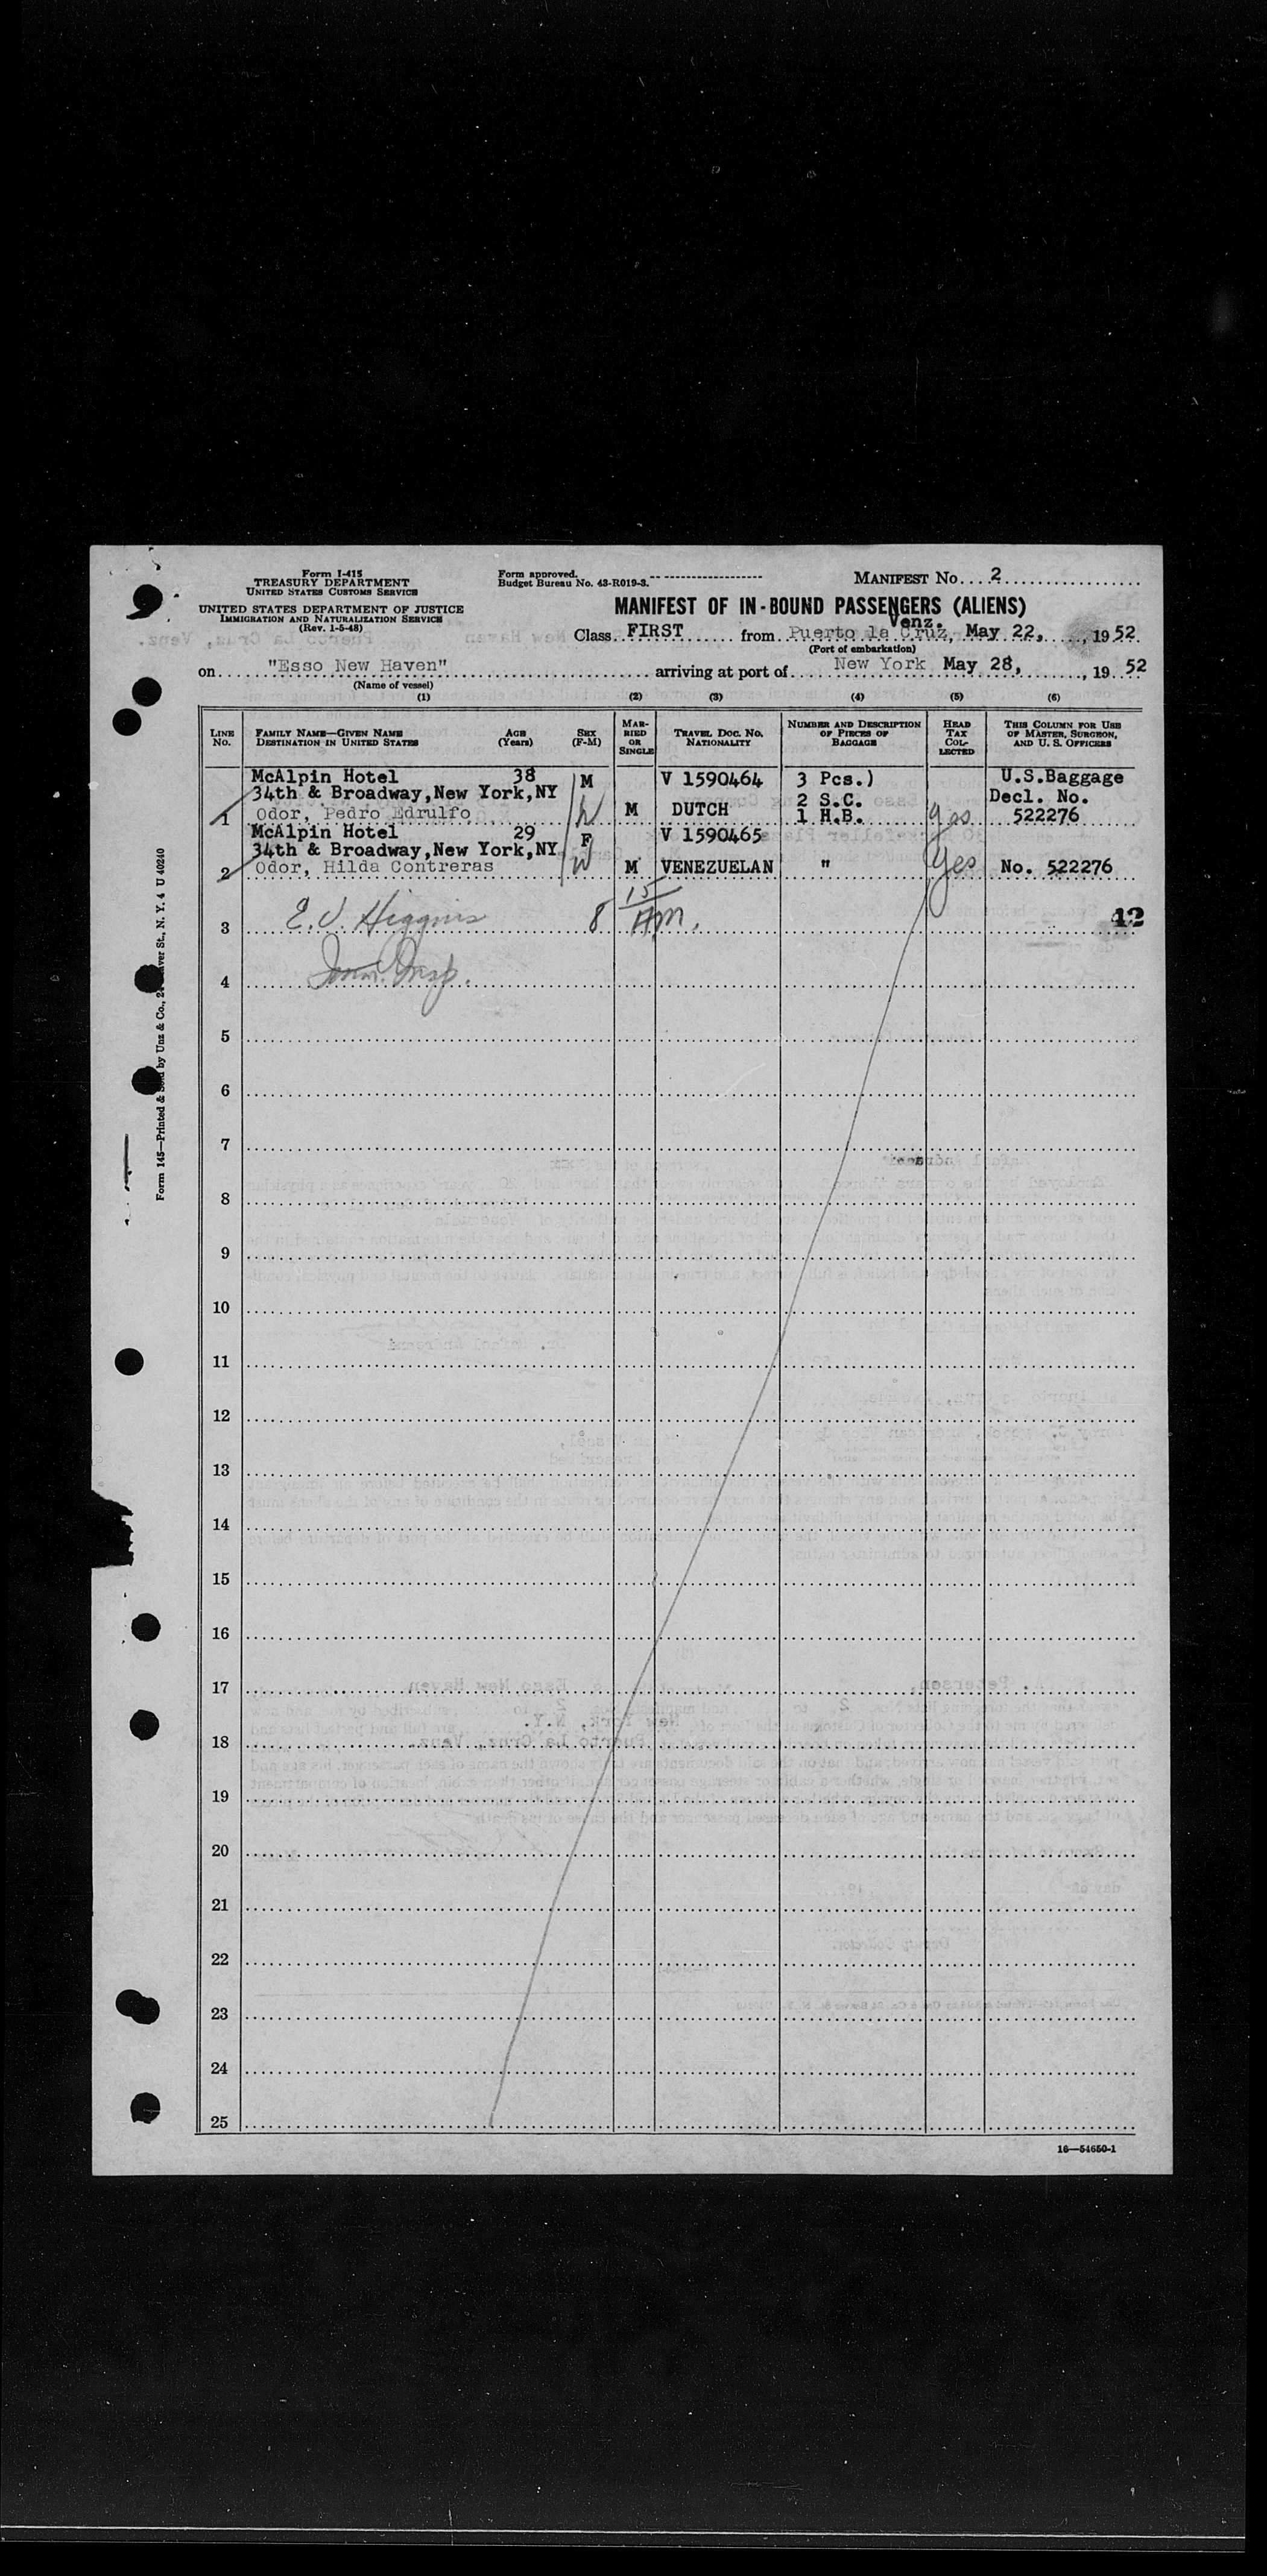 Form I-415
TREASURY DEPARTMENT
UNITED STATES CUSTOMS SERVICE
UNITED STATES DEPARTMENT OF JUSTICE
IMMIGRATION AND NATURALIZATION SERVICE
(Rev. 1-5-48)
Form approved.
Budget Bureau No. 43-R019-3.
MANIFEST No. 2
MANIFEST OF IN-BOUND PASSENGERS (ALIENS)
Venz.
Class FIRST from Puerto la Cruz, May 22, , 1952
(Port of embarkation)
on "Esso New Haven" arriving at port of New York May 28, , 19 52
(Name of vessel)
(1) (2) (3) (4) (5) (6)
LINE No. FAMILY NAME—GIVEN NAME DESTINATION IN UNITED STATES AGE (Years) SEX (F-M) MARRIED OR SINGLE TRAVEL DOC. NO. NATIONALITY NUMBER AND DESCRIPTION OF PIECES OF BAGGAGE HEAD TAX COLLECTED THIS COLUMN FOR USE OF MASTER, SURGEON, AND U. S. OFFICERS
McAlpin Hotel 38 M V 1590464 3 Pcs.) U.S.Baggage
34th & Broadway,New York,NY 2 S.C. Decl. No.
1 Odor, Pedro Edrulfo W M DUTCH 1 H.B. Yes 522276
McAlpin Hotel 29 F V 1590465
34th & Broadway,New York,NY
2 Odor, Hilda Contreras W M VENEZUELAN " Yes No. 522276
3 E.J. Higgins 8 15 A.M. 42
4 Imm. Insp.
5
6
7
8
9
10
11
12
13
14
15
16
17
18
19
20
21
22
23
24
25
16—54650-1